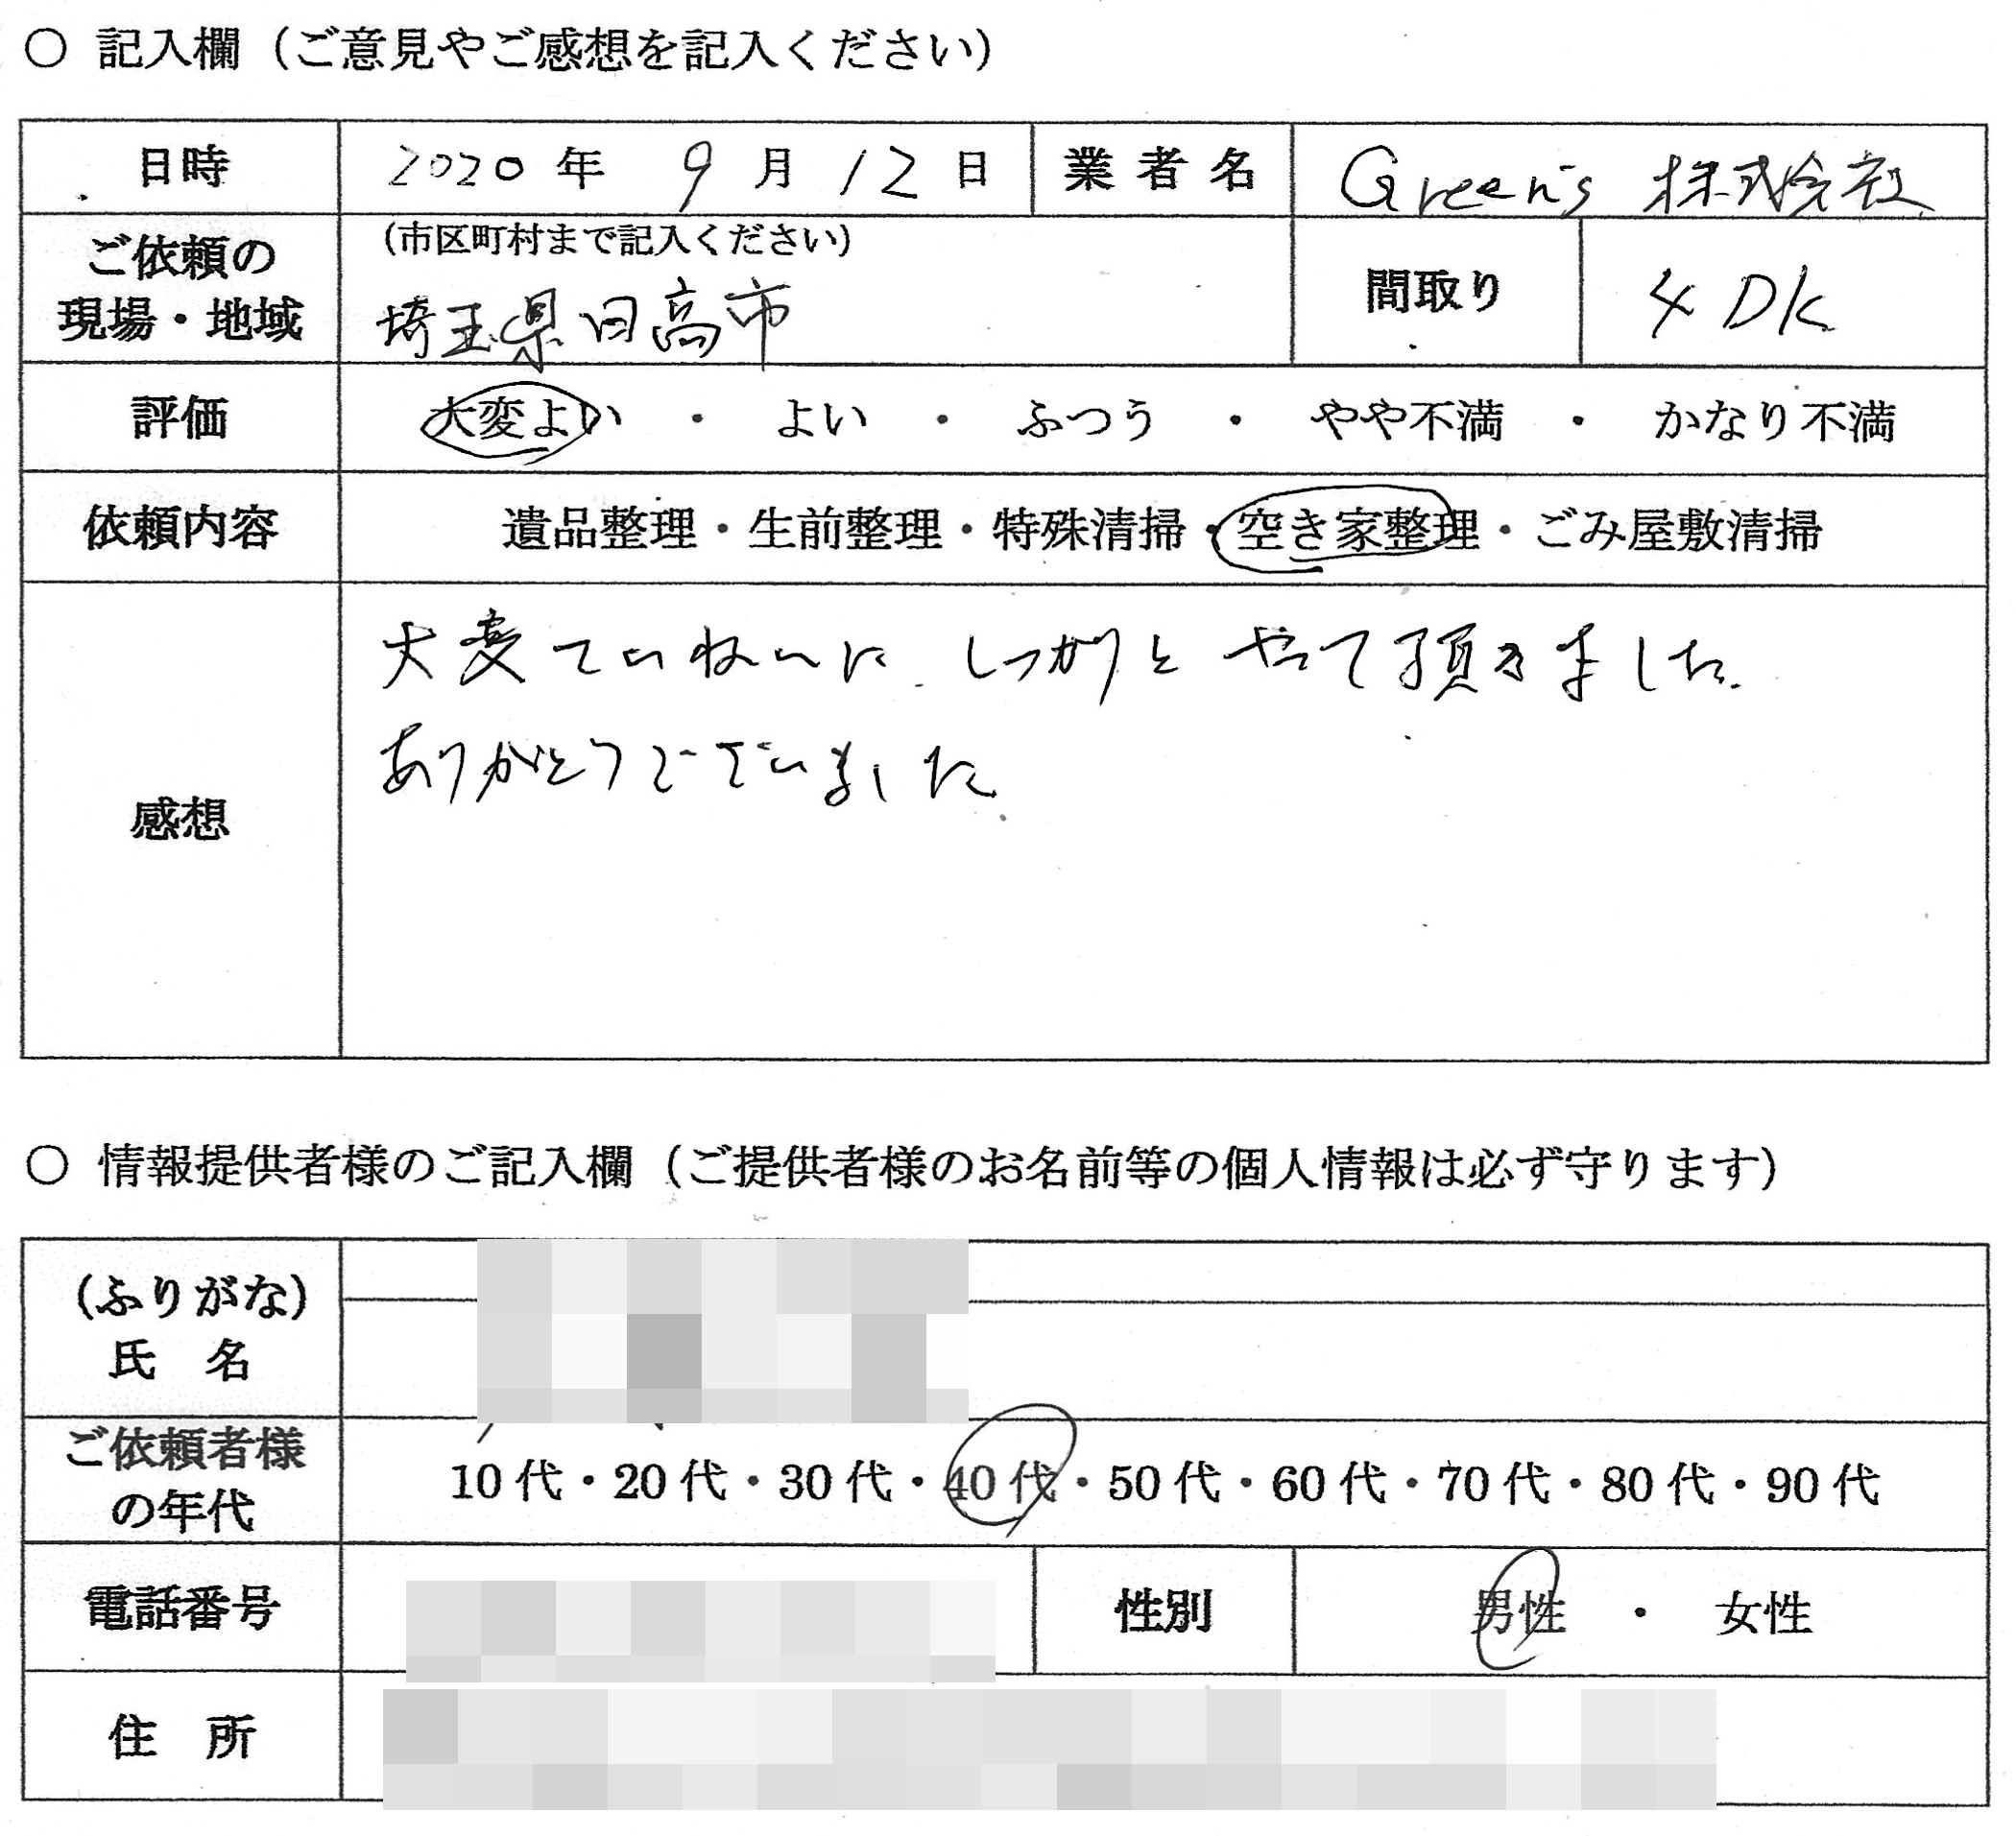 ○ 記入欄（ご意見やご感想を記入ください）
日時 2020 年 9 月 12 日 業者名 Green's 株式会社
ご依頼の現場・地域 （市区町村まで記入ください）
埼玉県日高市 間取り 4DK
評価 大変よい ・ よい ・ ふつう ・ やや不満 ・ かなり不満
依頼内容 遺品整理・生前整理・特殊清掃・空き家整理・ごみ屋敷清掃
感想
大変ていねいに しっかりと やって頂きました.
ありがとうございました
○ 情報提供者様のご記入欄（ご提供者様のお名前等の個人情報は必ず守ります）
（ふりがな）
氏 名
ご依頼者様
の年代 10代・20代・30代・40代・50代・60代・70代・80代・90代
電話番号 性別 男性 ・ 女性
住 所